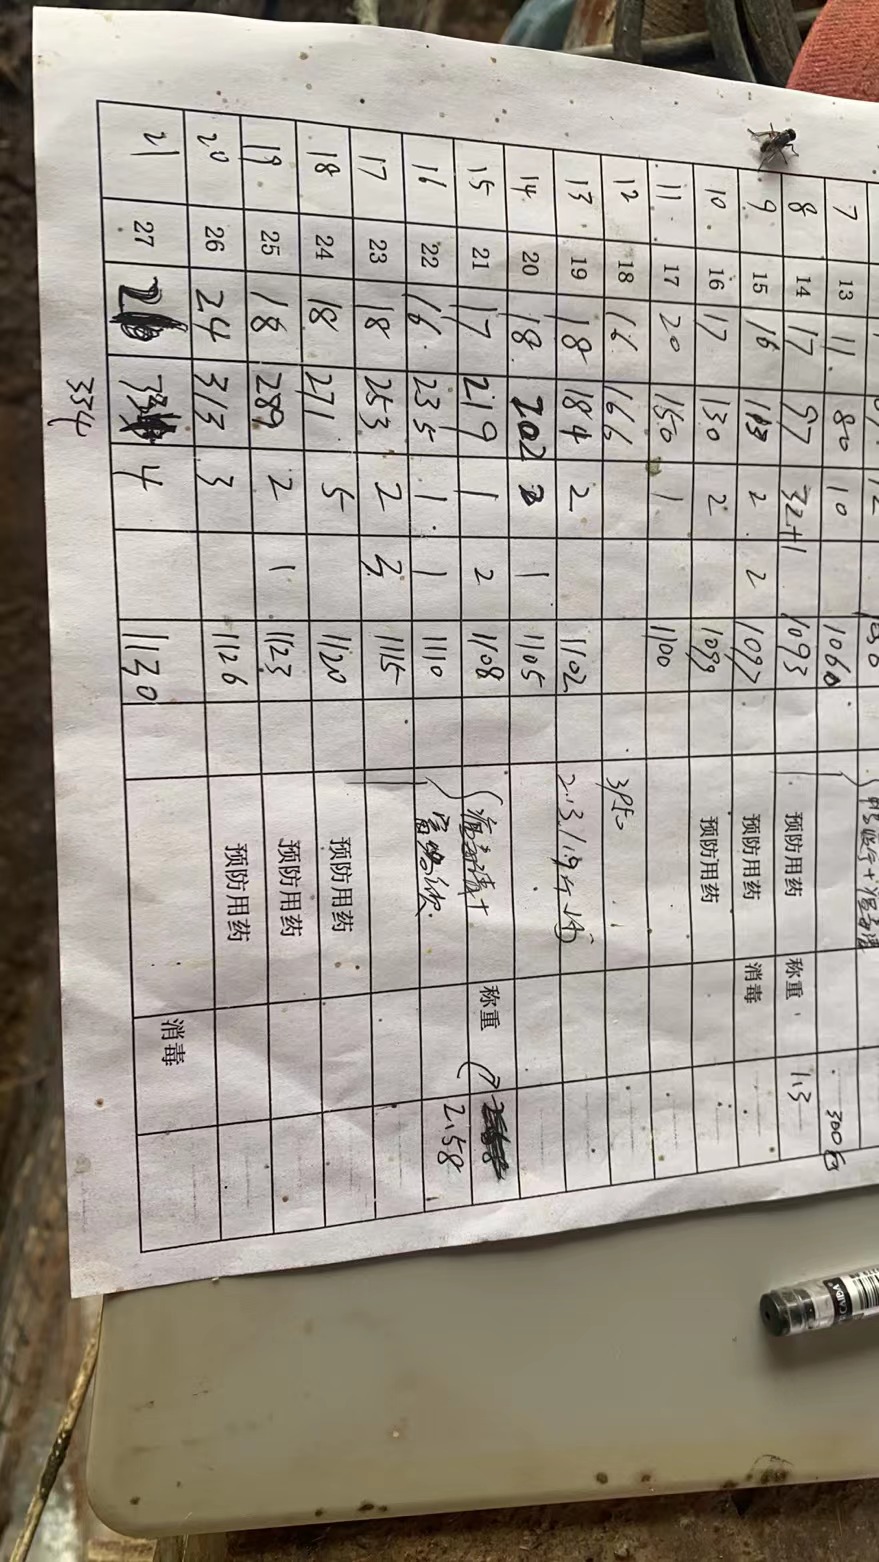 7 13 11. 80 10 1060 300
8 14 17 97 32+1 1093 预防用药 称重 1.3
9 15 16 113 2 2 1097 预防用药 消毒
10. 16 17 130 2 1099 预防用药
11. 17 20 150 1 1100
12 18 16 166
13. 19 18 184 2 1102
14. 20 18. 202 1 1105
15 21 17 219 1 2 1108 病毒清+ 称重
16 22 16. 235 1 1 1110 2.58
17 23 18 253 2 3 1115
18 24 18 271 5 1120 预防用药
19. 25 18 289 2 1 1123 预防用药
20 26 24 313 3 1126 预防用药
21 27 4 1130 消毒
334